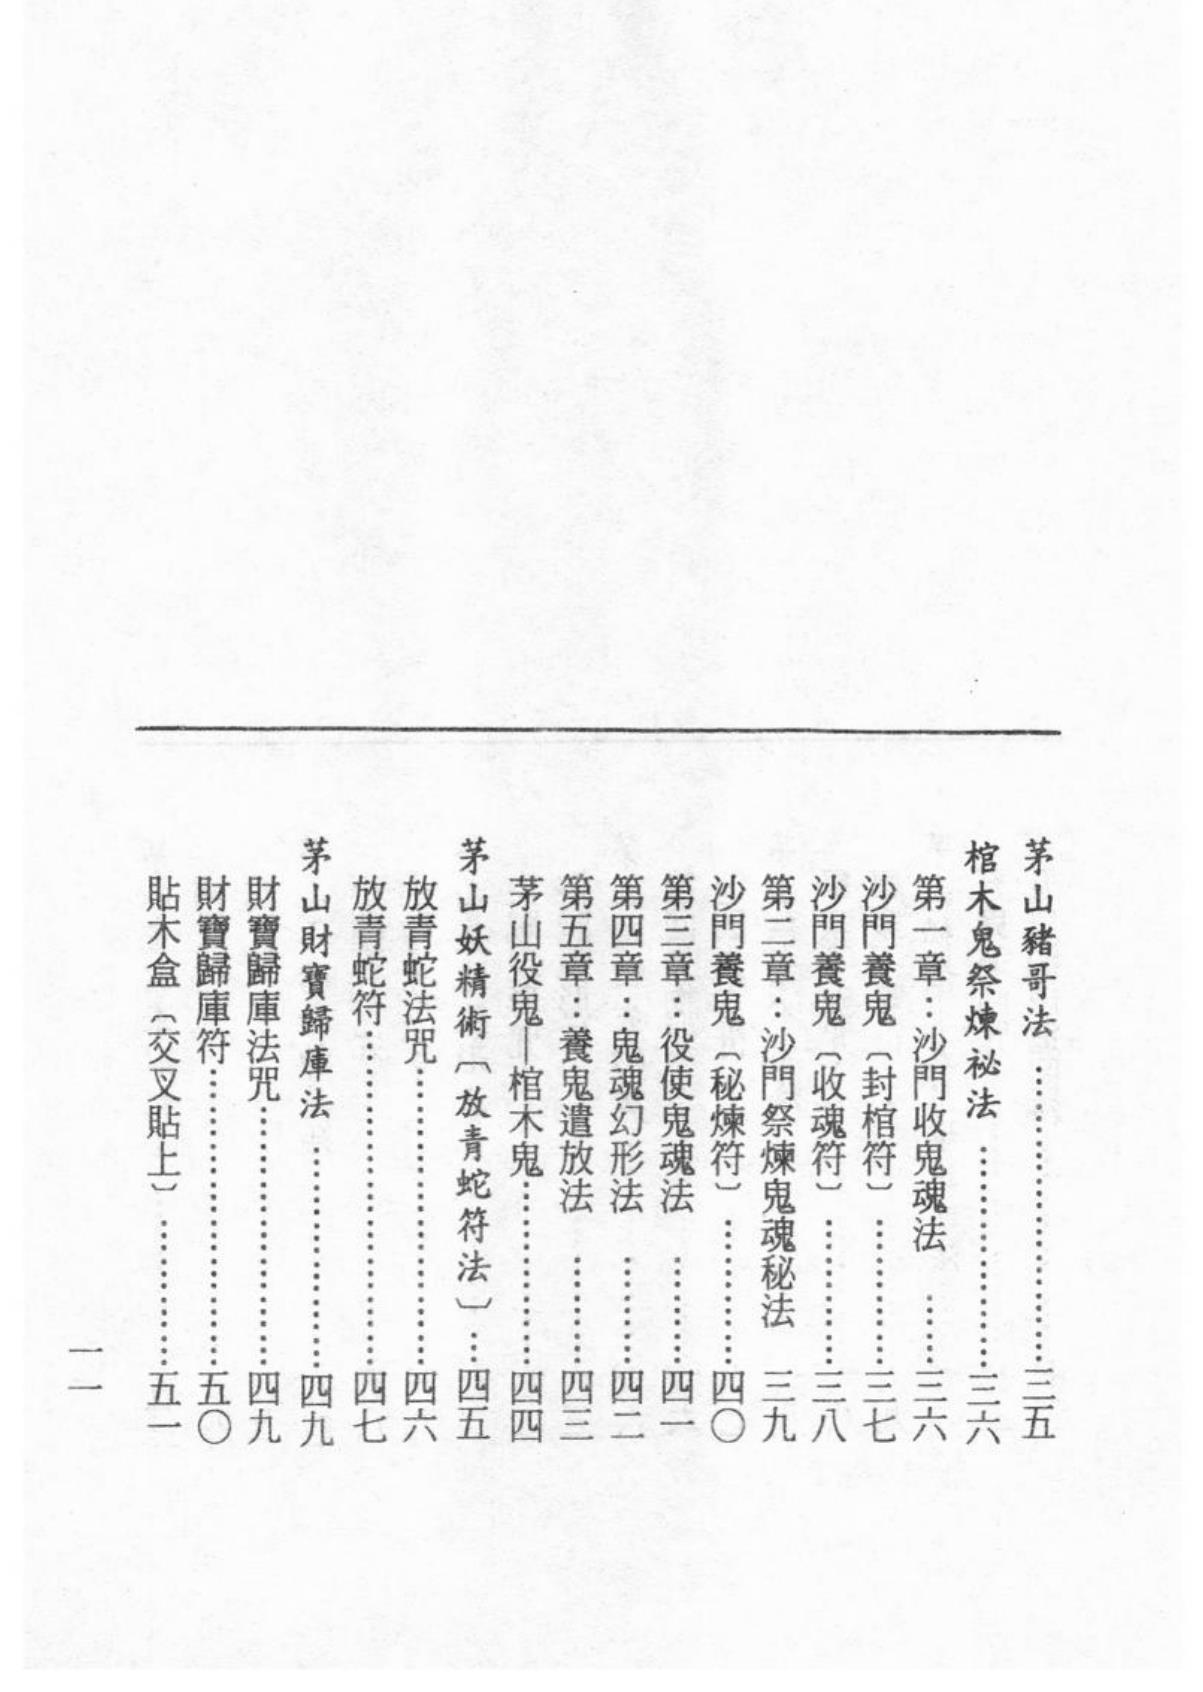 茅山豬哥法……………………三五
棺木鬼祭煉祕法………………三六
第一章：沙門收鬼魂法……三六
沙門養鬼〔封棺符〕…………三七
沙門養鬼〔收魂符〕…………三八
第二章：沙門祭煉鬼魂秘法三九
沙門養鬼〔秘煉符〕…………四〇
第三章：役使鬼魂法………四一
第四章：鬼魂幻形法………四二
第五章：養鬼遣放法………四三
茅山役鬼—棺木鬼……………四四
茅山妖精術〔放青蛇符法〕…四五
放青蛇法咒……………………四六
放青蛇符………………………四七
茅山財寶歸庫法………………四九
財寶歸庫法咒…………………四九
財寶歸庫符……………………五〇
貼木盒〔交叉貼上〕…………五一
一一